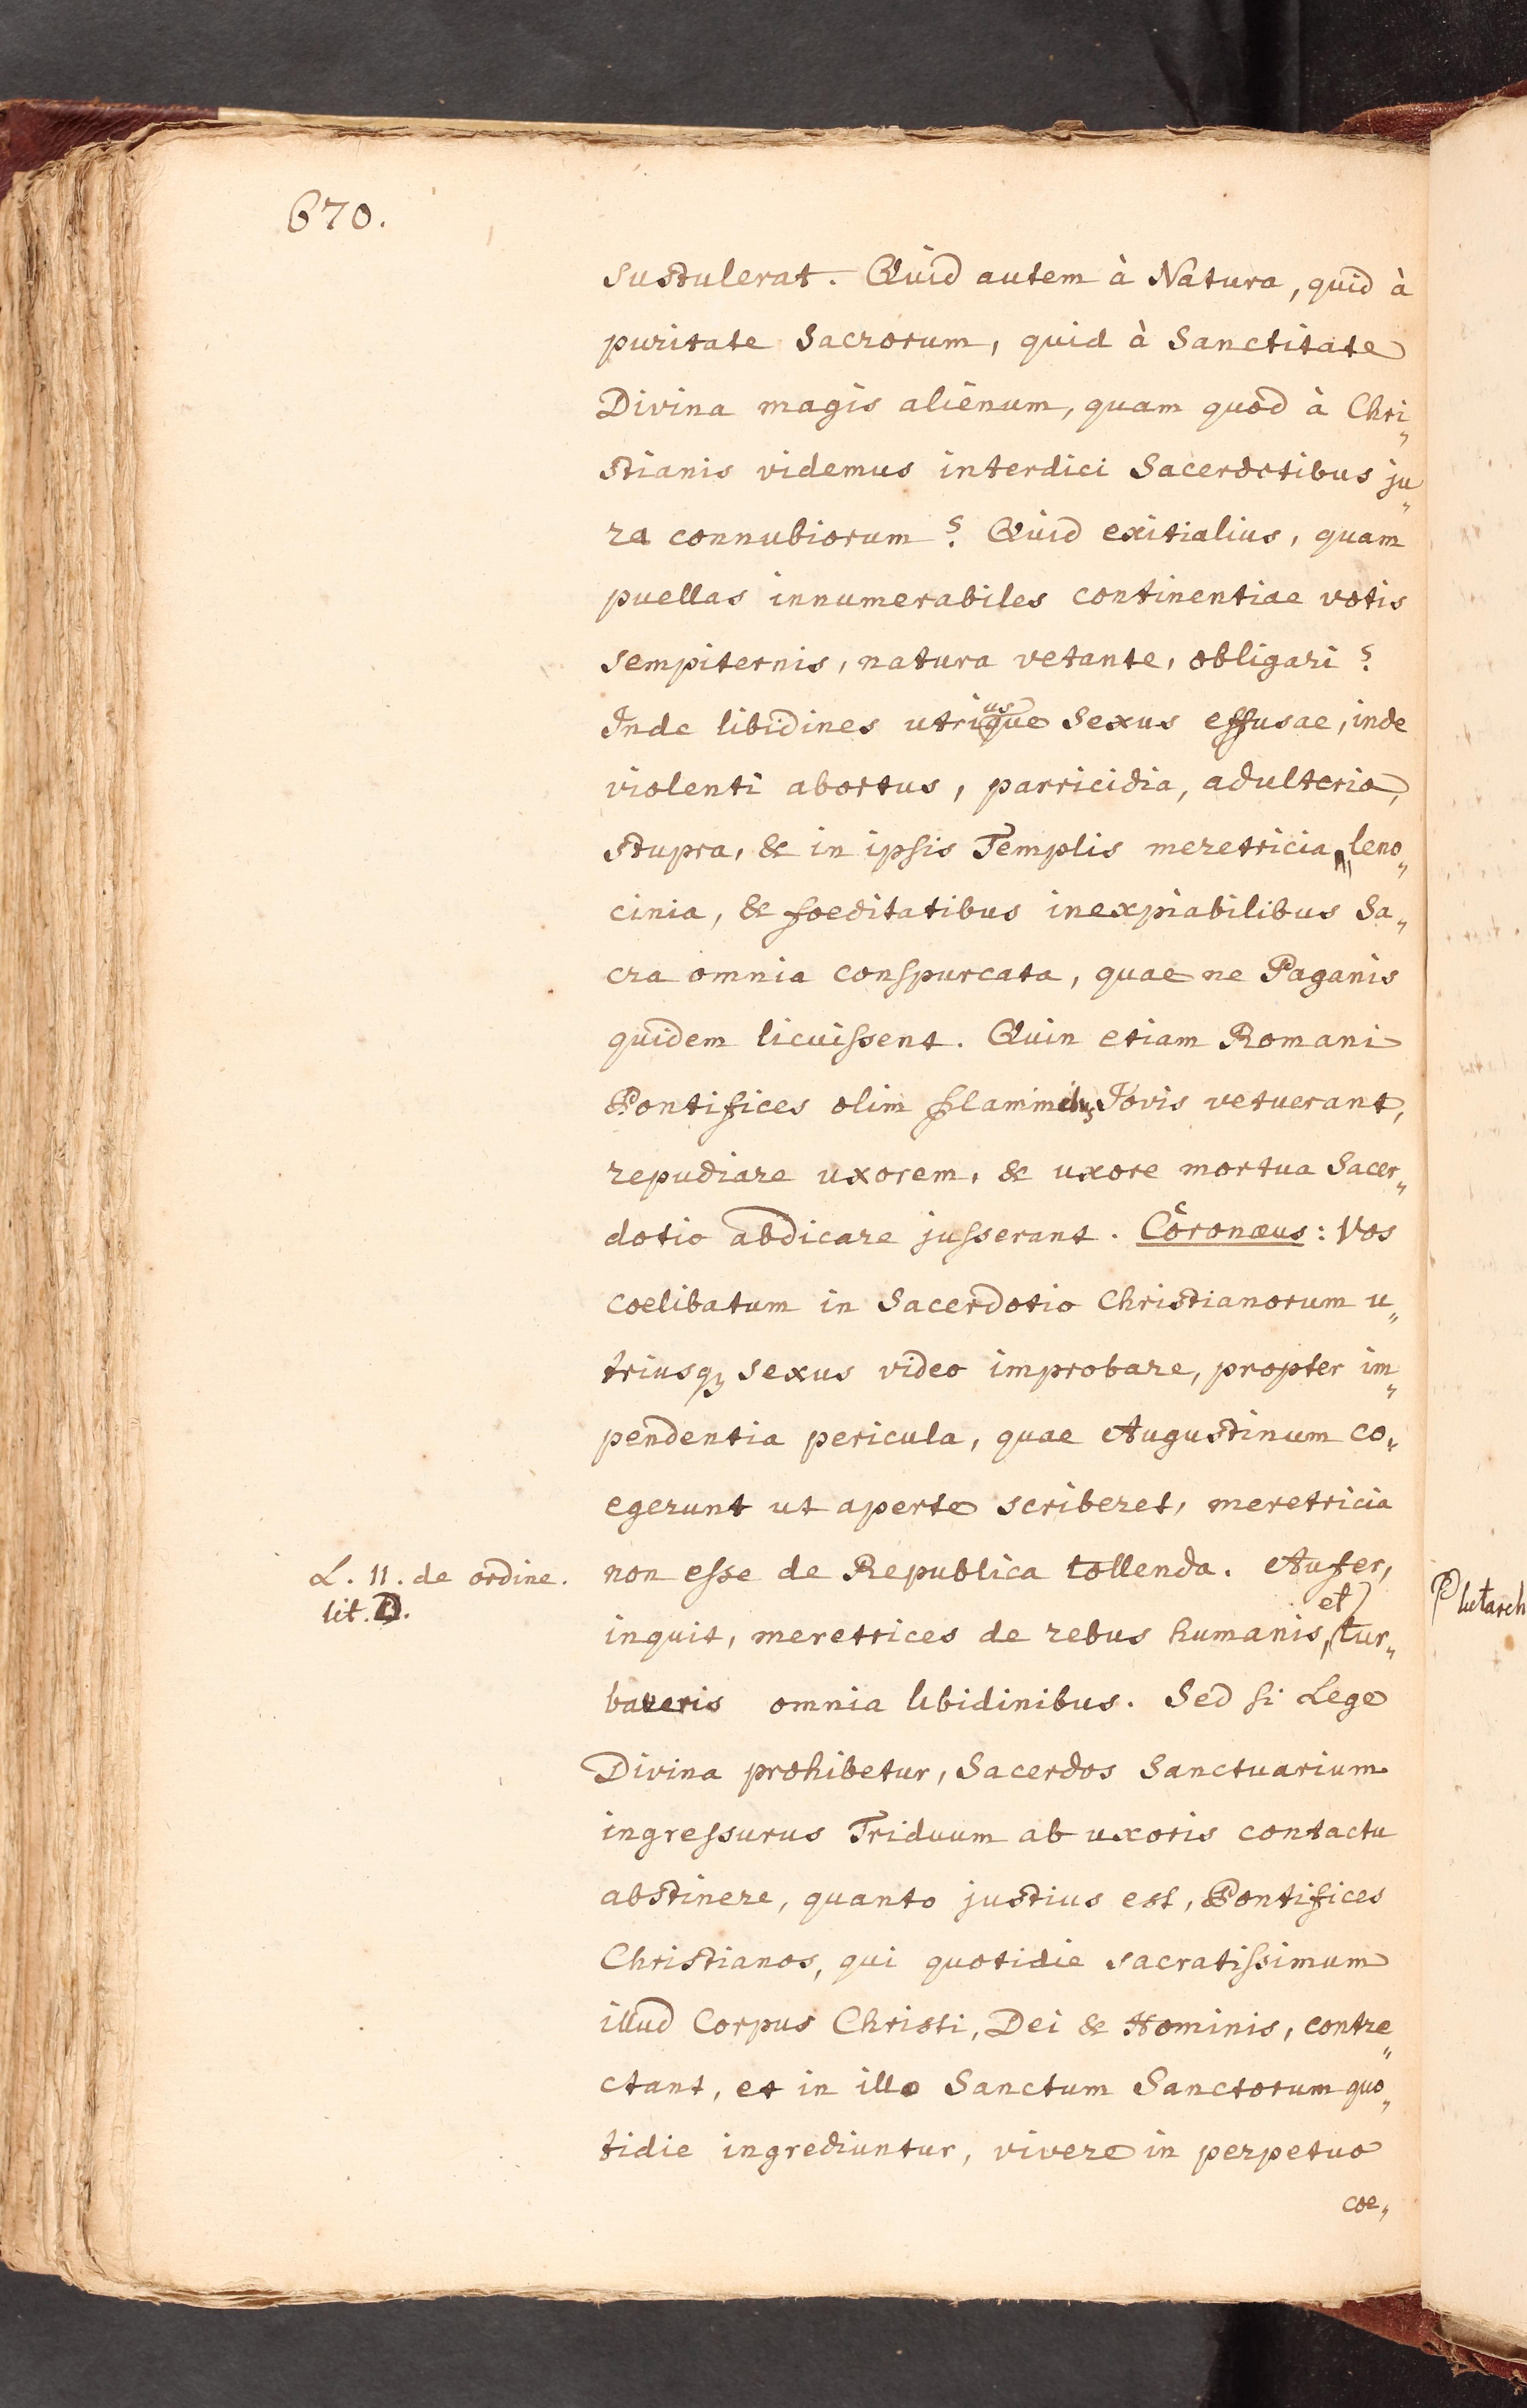 670.
sustulerat. Quid autem à Natura, quid à
puritate Sacrorum, quid à Sanctitate
Divina magis alienum, quam quod à Chri„
stianis videmus interdici Sacerdotibus ju„
ra connubiorum? Quid exitialius, quam
puellas innumerabiles continentiae votis
sempiternis, natura vetante, obligari?
Inde libidines utriusque Sexus effusae, inde
violenti abortus, parricidia, adulteria,
stupra, & in ipsis Templis meretricia, leno„
cinia, & foeditatibus inexpiabilibus Sa„
cra omnia conspurcata, quae ne Paganis
quidem licuissent. Quin etiam Romani
Pontifices olim flaminibus Jovis vetuerant,
repudiare uxorem, & uxore mortua Sacer„
dotio abdicare jusserant. Coronæus: Vos
coelibatum in Sacerdotio Christianorum u„
triusqȝ sexus video improbare, propter im„
pendentia pericula, quae Augustinum co„
egerunt ut aperte scriberet, meretricia
L. 11. de ordine.
lit. D.
non esse de Republica tollenda. Aufer,
inquit, meretrices de rebus humanis, et tur„
baveris omnia libidinibus. Sed si Lege
Divina prohibetur, Sacerdos Sanctuarium
ingressurus Triduum ab uxoris contactu
abstinere, quanto justius est, Pontifices
Christianos, qui quotidie sacratissimum
illud Corpus Christi, Dei & Hominis, contre„
ctant, et in illo Sanctum Sanctorum quo„
tidie ingrediuntur, vivere in perpetuo
coe„
Plutarch